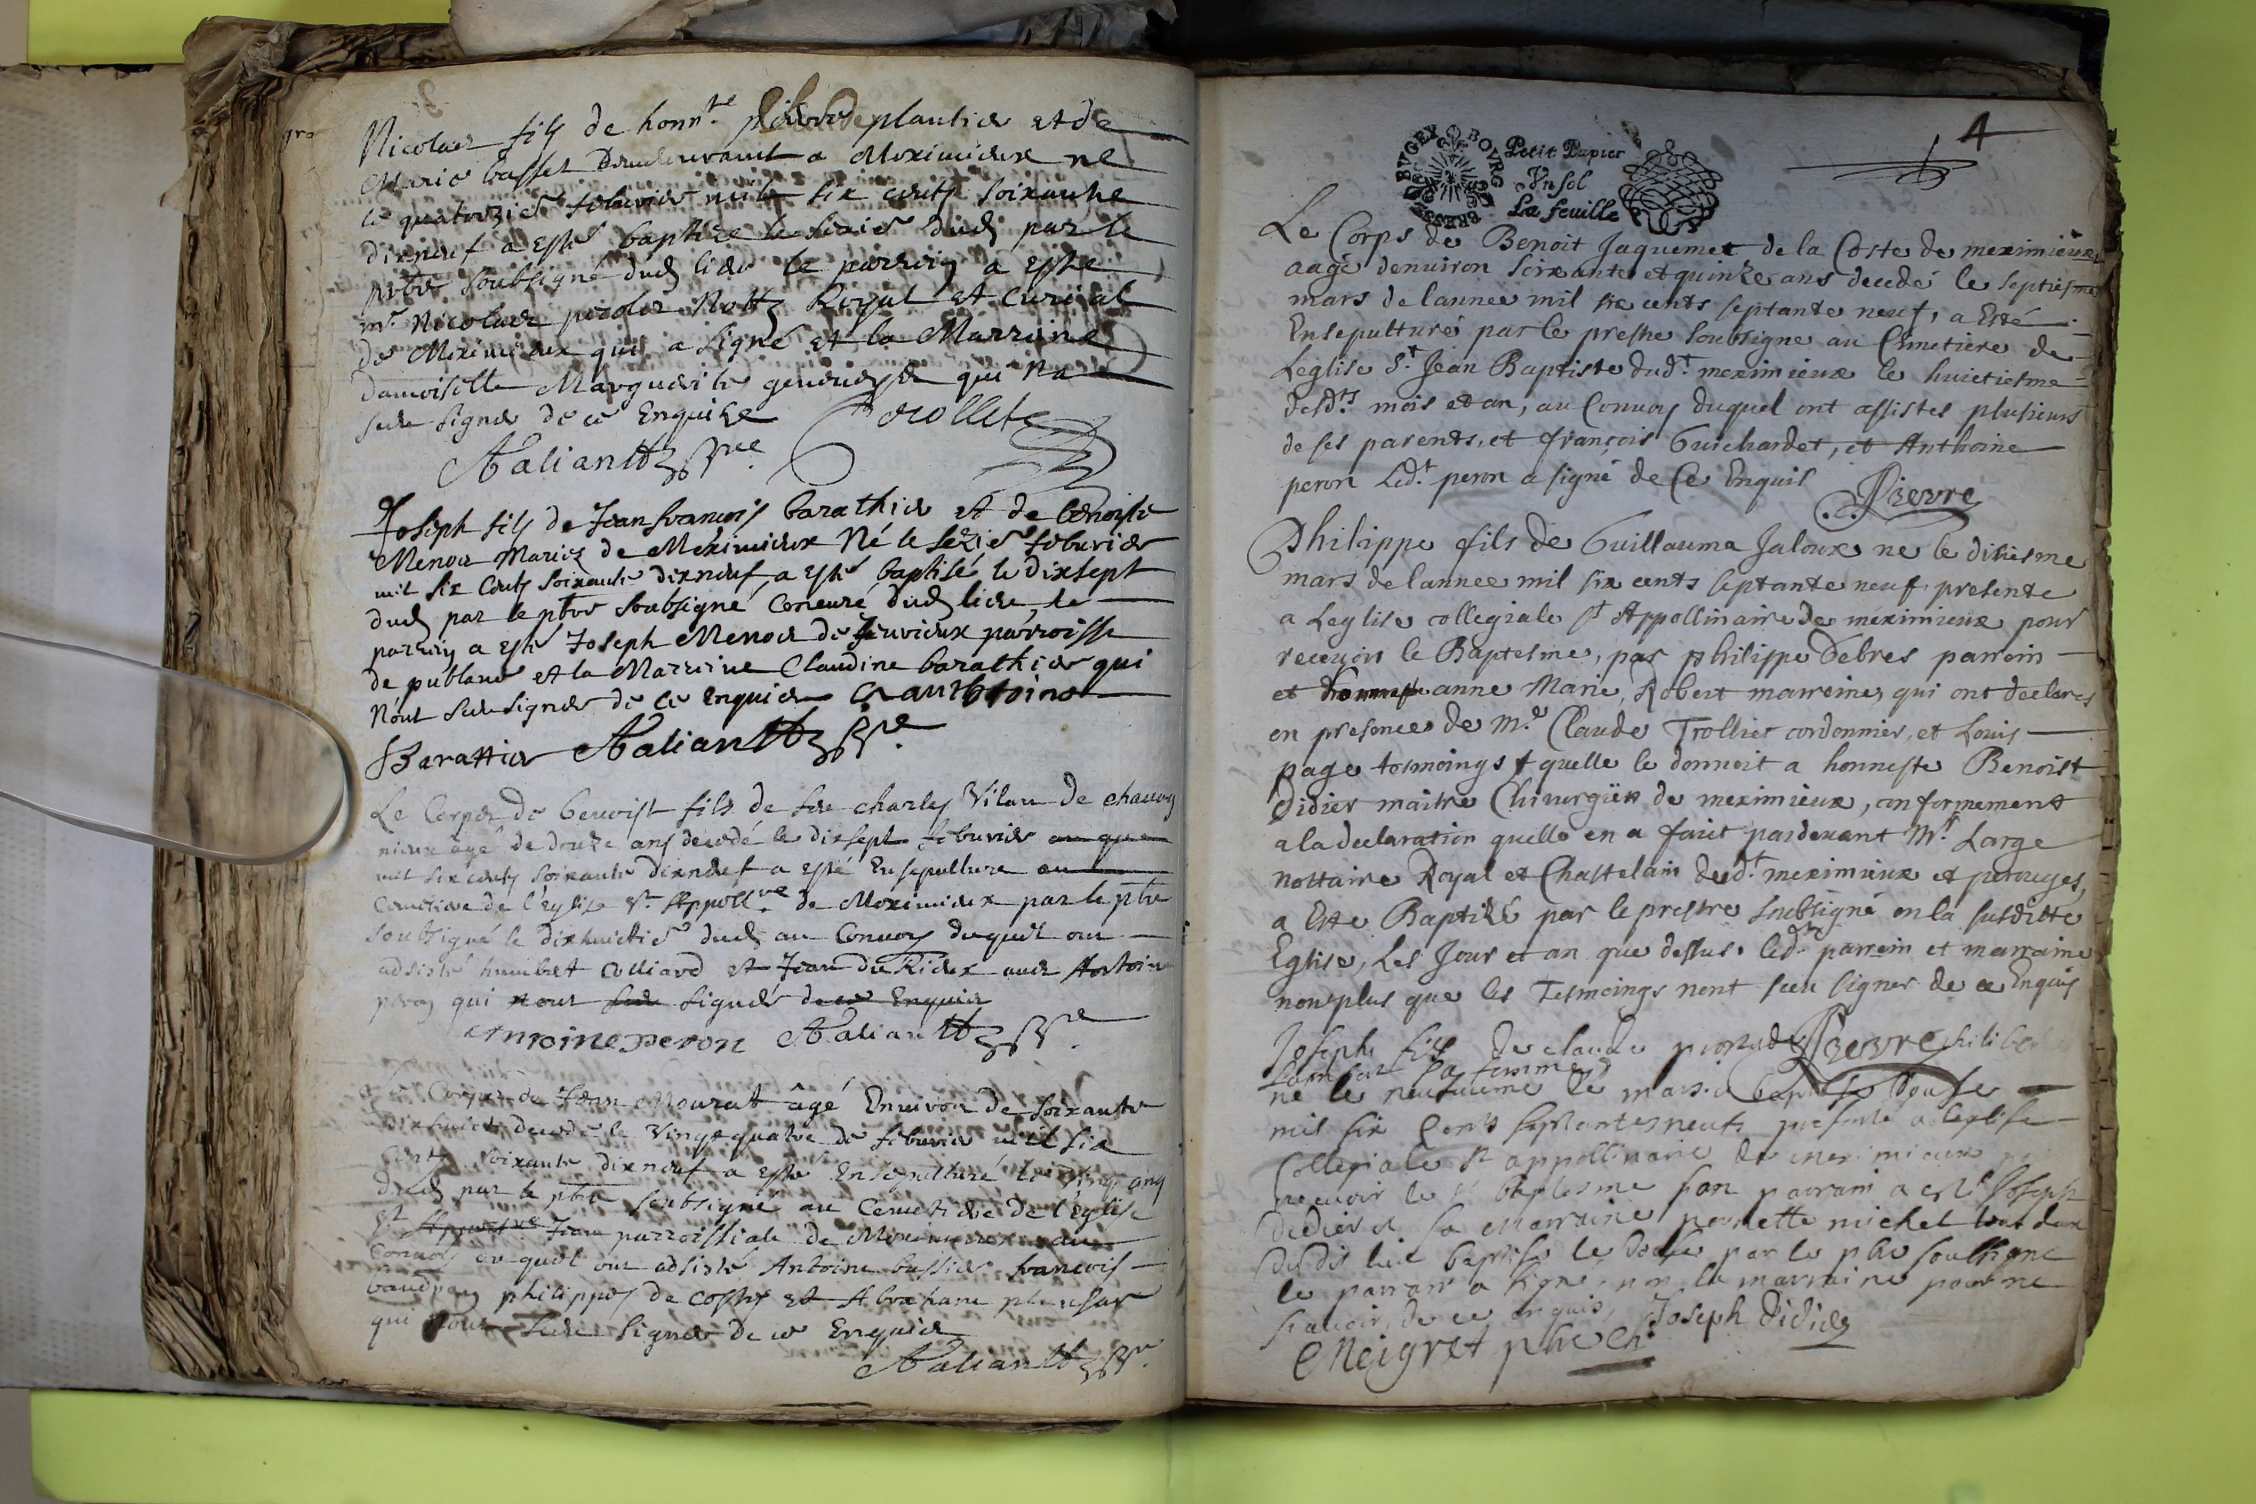 Nicolas fils de honn.te pierre de plantier et de
Marie basset Demeurant a Meximieux ne
le quatorzie febvrier mil six cents soixante
dixneuf a este baptize le seizie dud par le
pbre soubsigné dud lieu le parrein a este
m.re Nicolas Nott Royal et curial
de Meximieux qui a signé et la Marraine
damoiselle Marguerite qui na
sceu signer de ce Enquise
Joseph fils de Jean francois barathier et de benoiste
Menou Mariez de Meximieux Né le sezie febvrier
mil six cents soixante dixneuf a esté baptisé le dixsept
dud par le pbre soubsigné dud lieu, le
parrein a esté Joseph Menou de parroisse
de publane et la Marrine Claudine barathier qui
nont sceu signer de ce enquis
Barattier
Le Corps de benoist fils de feu charles Vilan de
agé de douze ans decedé le dixsept febvrier
mil six cents soixante dixneuf a esté Ensepulture au
Cemetiere de l'eglise St. Appoll.re de Meximieux par le pbre
soubsigné le dixhuictie dud au Convoy duquel ont
adsisté humbert Colliard et Jean avec Antoine
peron qui nont sceu signer de ce Enquis
Antoine peron
Le Corps de Jean Mourat âgé Environ de soixante
dixhuict decedé le Vingt quatre de febvrier mil six
cents soixante dixneuf a esté Ensepulturé le Vingt cinq
dud par le pbre soubsigné au Cemetiere de l'Eglise
St Jean parroissiale de Meximieux au
Convoy duquel ont adsisté Antoine bassier francois
baudran philippes de coste et Abraham
qui nont sceu signer de ce Enquis
4
BVGEY BOVRG BRESSE
Petit Papier
Vn sol
La feuille
Le Corps de Benoit Jaquemet de la Coste de meximieux
aagé denuiron soixante et quinze ans decedé le septiesme
mars de lannee mil six cents septante neuf, a Esté
Ensepulturé par le prestre soubsigne au Cimetiere de
Leglise St. Jean Baptiste dud.t meximieux le huictiesme
desd.ts mois et an, au Convoy duquel ont assistes plusieurs
de ses parents, et françois Guichardet, et Anthoine
peron Led.t peron a signé de Ce Enquis
Pievre
Philippe fils de Guillauma Jaloux ne le diziesme
mars de lannee mil six cents septante neuf presente
a Leglise collegiale St Appollinaire de meximieux pour
recevoir le Baptesme, par philippe Debres parrein
et anne Marie Robert marreine, qui ont declares
en presence de m.e Claude Trollier cordonnier, et Louis
page tesmoings quelle le donnoit a honneste Benoist
Didier maitre Chirurgien de meximieux, conformement
a la declaration quelle en a faict pardevant M.r Large
nottaire Royal et Chastelain dud.t meximieux et perouges,
a Esté Baptizé par le prestre soubsigné en la susditte
Eglise, Les Jour et an que dessus. led. parrein et marraine
non plus que les Tesmoings nont sceu signer de ce Enquis
Pievre
Joseph fils de claude philiber
sa femme
ne le neufvieme de mars a baptisé douse
mil six Cents septante neuf presenté a leglise
Collegiale St appollinaire de meximieux
recevoir le St baptesme son parrain a esté Joseph
Didier et sa marraine pernette michel tous deux
dudit lieu baptisé le douse par le pbre soubsigne
le parrain a signé, non la marraine pour ne
scavoir, de ce enquis, Joseph Didier
Meigret pbre ch.